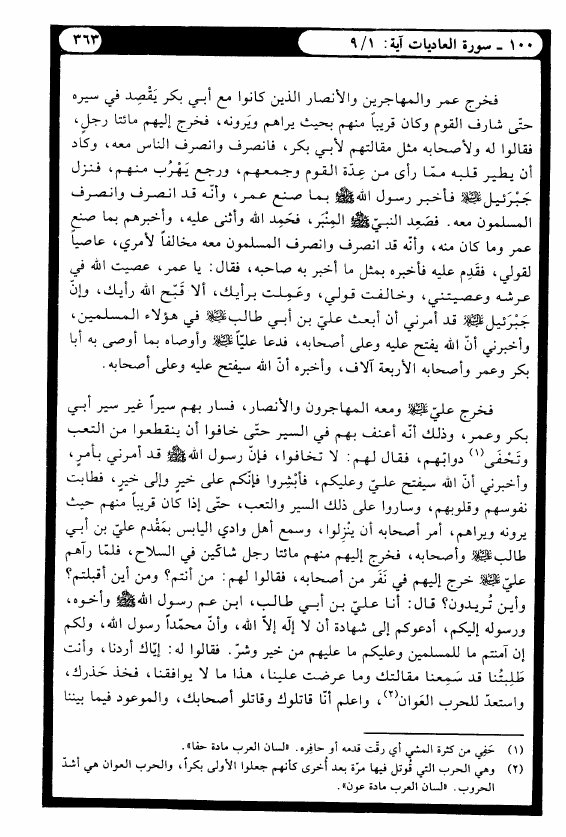 ١٠٠ ـ سورة العاديات آية: ٩/١
٣٦٣
فخرج عمر والمهاجرين والأنصار الذين كانوا مع أبي بكر يَقْصِد في سيره
حتّى شارف القوم وكان قريباً منهم بحيث يراهم ويَرونه، فخرج إليهم مائتا رجل،
فقالوا له ولأصحابه مثل مقالتهم لأبي بكر، فانصرف وانصرف الناس معه، وكاد
أن يطير قلبه ممّا رأى من عِدّة القوم وجمعهم، ورجع يَهْرُب منهم، فنزل
جَبْرَئيل ﷺ فأخبر رسول الله ﷺ بما صنع عمر، وأنّه قد انصرف وانصرف
المسلمون معه. فصَعِد النبيّ ﷺ المِنْبَر، فحَمِد الله وأثنى عليه، وأخبرهم بما صنع
عمر وما كان منه، وأنّه قد انصرف وانصرف المسلمون معه مخالفاً لأمري، عاصياً
لقولي، فقَدِم عليه فأخبره بمثل ما أخبر به صاحبه، فقال: يا عمر، عصيت الله في
عرشه وعصيتني، وخالفت قولي، وعَمِلت برأيك، ألا قَبّح الله رأيك، وإنّ
جَبْرَئيل ﷺ قد أمرني أن أبعث عليّ بن أبي طالب ﷺ في هؤلاء المسلمين،
وأخبرني أنّ الله يفتح عليه وعلى أصحابه، فدعا عليّاً ﷺ وأوصاه بما أوصى به أبا
بكر وعمر وأصحابه الأربعة آلاف، وأخبره أنّ الله سيفتح عليه وعلى أصحابه.
فخرج عليّ ﷺ ومعه المهاجرون والأنصار، فسار بهم سيراً غير سير أبي
بكر وعمر، وذلك أنّه أعنف بهم في السير حتّى خافوا أن ينقطعوا من التعب
وتَحْفَى(١) دوابّهم، فقال لهم: لا تخافوا، فإنّ رسول الله ﷺ قد أمرني بأمرٍ،
وأخبرني أنّ الله سيفتح عليّ وعليكم، فأبْشِروا فإنّكم على خيرٍ وإلى خيرٍ، فطابت
نفوسهم وقلوبهم، وساروا على ذلك السير والتعب، حتّى إذا كان قريباً منهم حيث
يرونه ويراهم، أمر أصحابه أن يَنْزِلوا، وسمع أهل وادي اليابس بمَقْدم عليّ بن أبي
طالب ﷺ وأصحابه، فخرج إليهم منهم مائتا رجل شاكّين في السلاح، فلمّا رآهم
عليّ ﷺ خرج إليهم في نَفَر من أصحابه، فقالوا لهم: من أنتم؟ ومن أين أقبلتم؟
وأين تُريدون؟ قال: أنا عليّ بن أبي طالب، ابن عم رسول الله ﷺ وأخوه،
ورسوله إليكم، أدعوكم إلى شهادة أن لا إلٰه إلاّ الله، وأنّ محمّداً رسول الله، ولكم
إن آمنتم ما للمسلمين وعليكم ما عليهم من خير وشرّ. فقالوا له: إيّاك أردنا، وأنت
طَلِبتُنا قد سَمِعنا مقالتك وما عرضت علينا، هذا ما لا يوافقنا، فخذ حَذرك،
واستعدّ للحرب العَوان(٢)، واعلم أنّا قاتلوك وقاتلو أصحابك، والموعود فيما بيننا
(١) حَفِي من كثرة المشي أي رقّت قدمه أو حافِره. «لسان العرب مادة حفا».
(٢) وهي الحرب التي قُوتل فيها مرّة بعد أُخرى كأنهم جعلوا الأولى بكراً، والحرب العوان هي أشدّ
الحروب. «لسان العرب مادة عون».